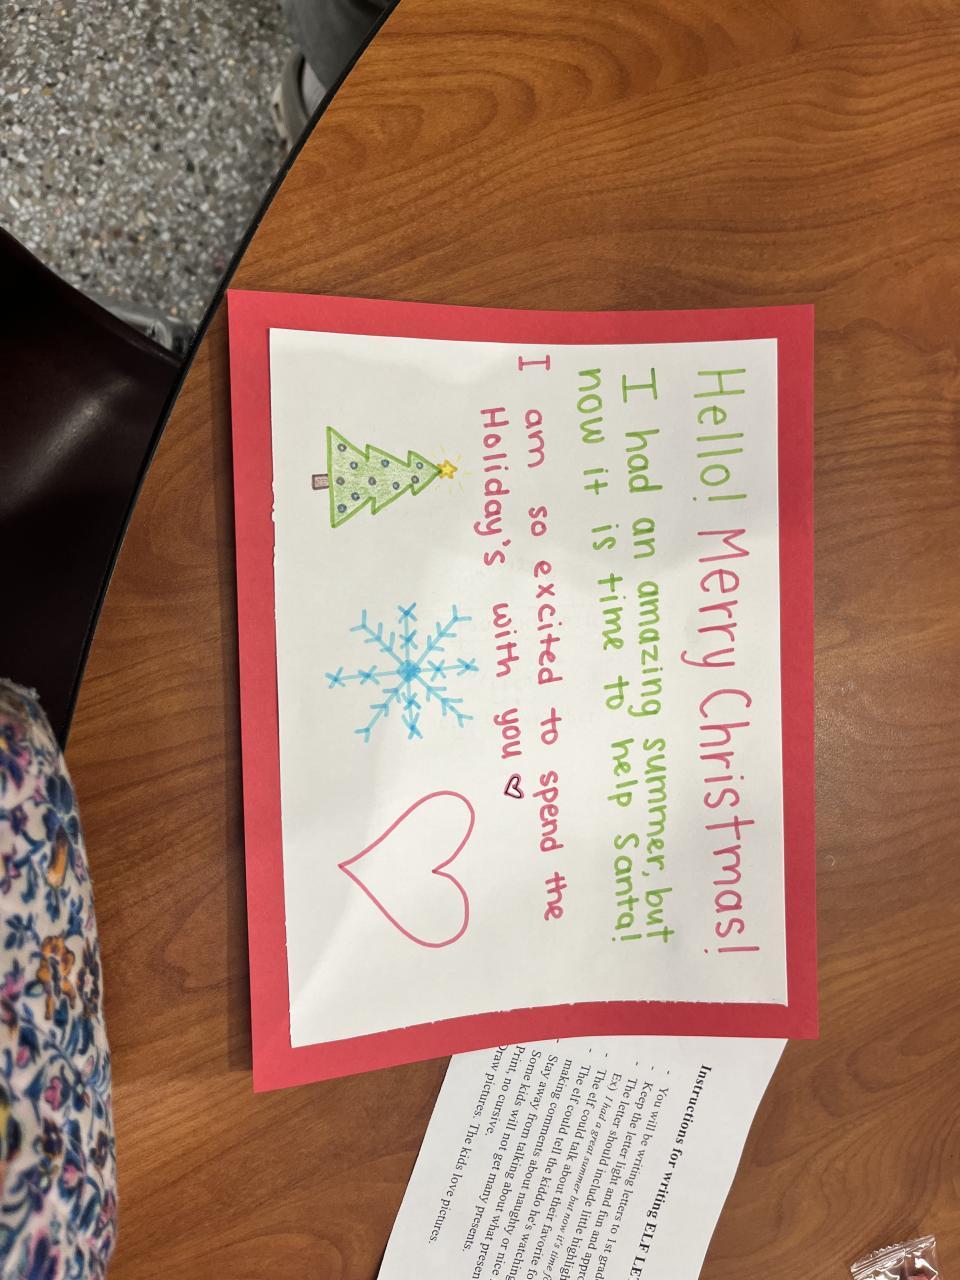 Hello! Merry Christmas!
I had an amazing summer, but
now it is time to help Santa!
I am so excited to spend the
Holiday's with you
Instructions for writing ELF
- You will be writing letters to 1st
- Keep the letter light and fun and
- The letter should include little
Ex) I had a great summer but now it's time
- The elf could talk about their favorite
- The elf could tell the kiddo he's watching
making
- Stay away from talking about naughty or nice
Some kids will not get many presents.
Print, no cursive.
Draw pictures. The kids love pictures.